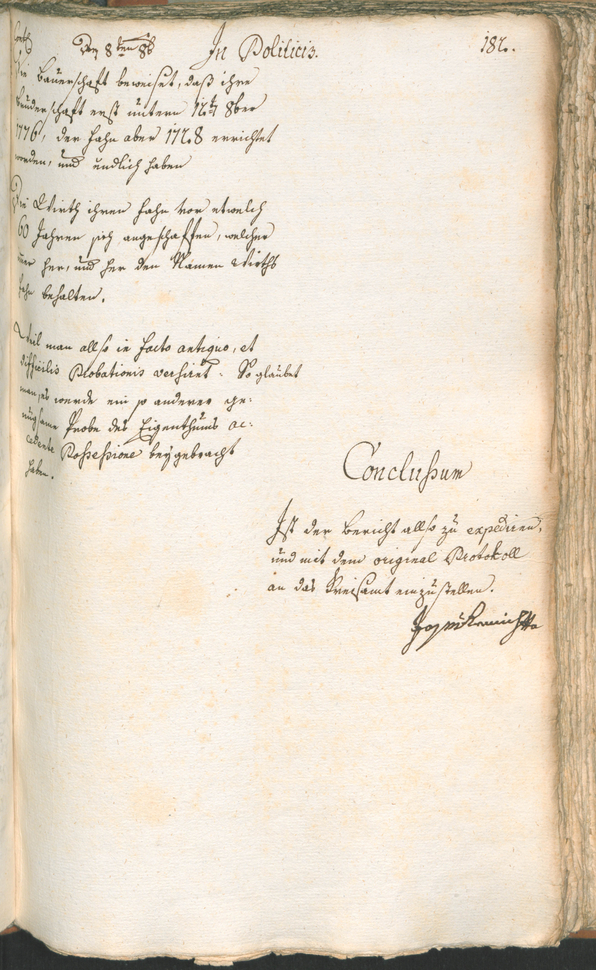 Den 8ten 8b In Politicis. 182.
Die Bauerschaft beweiset, daß ihre
Bruderschaft erst unterm 8ber
1776, der Fahn aber 1728 errichtet
worden, und endlich haben
Die Wirth ihren Fahn vor etwelch
60 Jahren sich angeschaffen, welcher
immer her, und her den Namen Wirths
Fahn behalten.
Weil man allso in facto antiquo, et
difficilis Probationis versiret. So glaubet
man, es werde ein so anderer ge:
nugsame Probe des Eigenthums ac:
cedente Possessione beygebracht
haben.
Conclusum
Ist der Bericht allso zu expediren,
und mit dem original Protokoll
an das Kreisamt einzustellen.